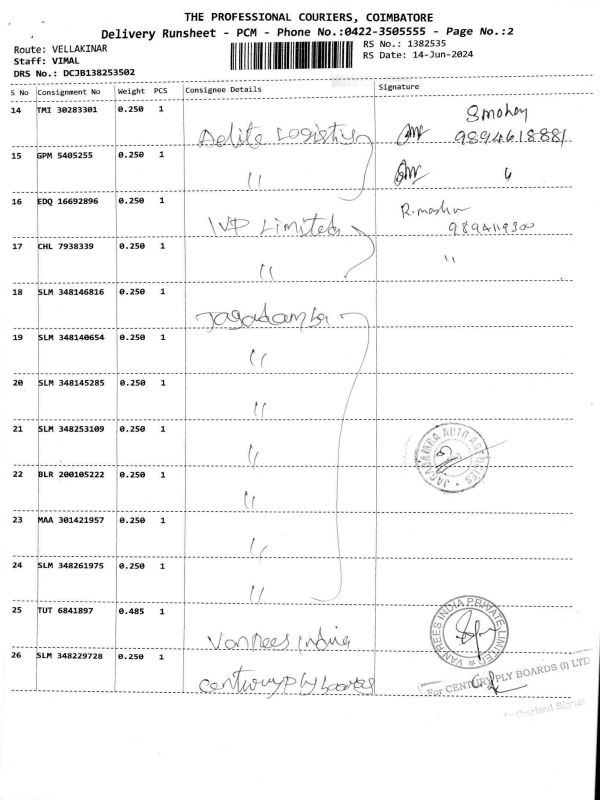 THE PROFESSIONAL COURIERS, COIMBATORE
Delivery Runsheet - PCM - Phone No.:0422-3505555 - Page No.:2
Route: VELLAKINAR
RS No.: 1382535
Staff: VIMAL
RS Date: 14-Jun-2024
DRS No.: DCJB138253502
S No Consignment No Weight PCS Consignee Details Signature
14 TMI 30283301 0.250 1 Adite Logistics Smohan
9894618881
15 GPM 5405255 0.250 1 "
16 EDQ 16692896 0.250 1 IVP Limited
17 CHL 7938339 0.250 1 " "
18 SLM 348146816 0.250 1 Jagadamba
19 SLM 348140654 0.250 1 "
20 SLM 348145285 0.250 1 "
21 SLM 348253109 0.250 1 " JAGADAMBA AUTO AGENCIES
22 BLR 200105222 0.250 1 "
23 MAA 301421957 0.250 1 "
24 SLM 348261975 0.250 1 "
25 TUT 6841897 0.485 1 VanRees India VAN REES INDIA PRIVATE LIMITED
26 SLM 348229728 0.250 1 centuryply boards For CENTURY PLY BOARDS (I) LTD
Authorised Signat